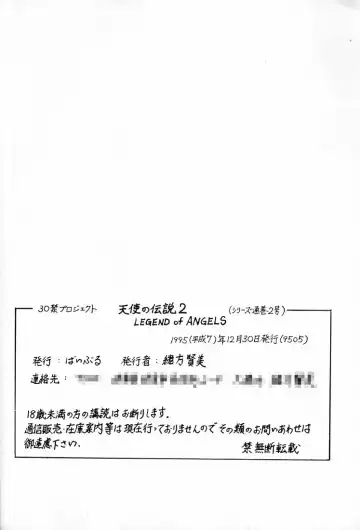 30禁プロジェクト 天使の伝説2 (シリーズ・通巻・2号)
LEGEND of ANGELS
1995(平成7)年12月30日発行(9505)
発行: ぱいぷる 発行者: 緒方賢美
連絡先:
18歳未満の方の購読はお断りします。
通信販売・在庫案内等は現在行っておりませんのでその類のお問いあわせは
御遠慮下さい。 禁無断転載